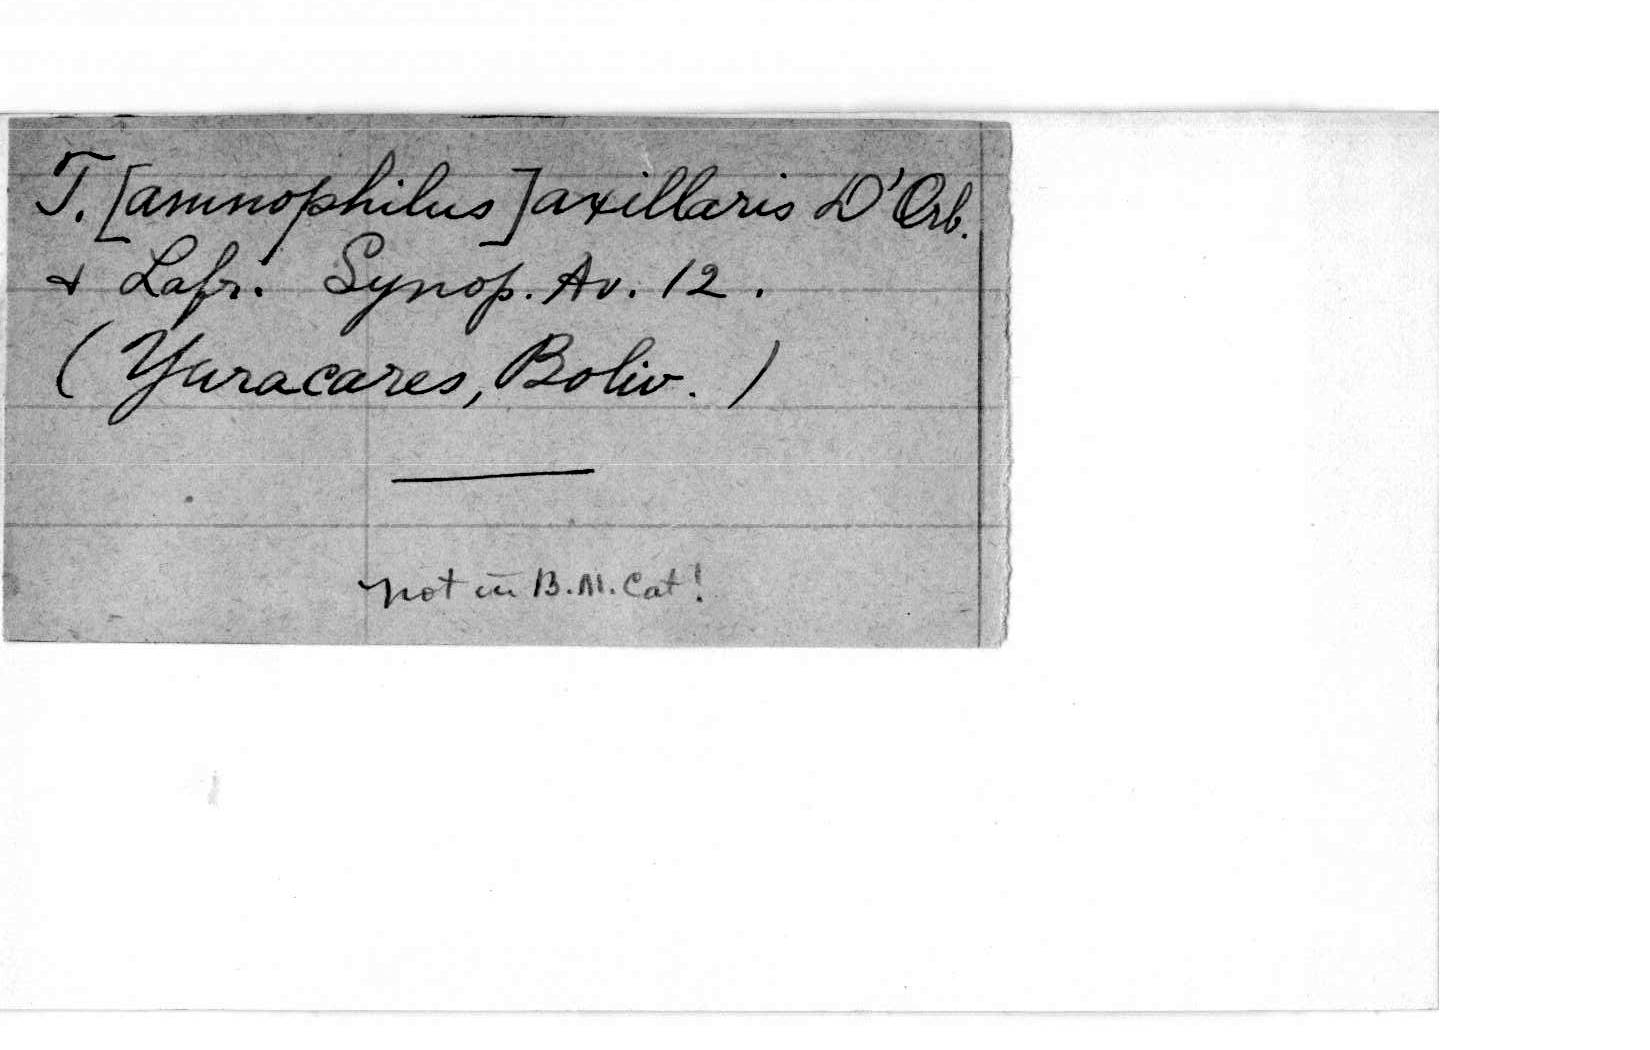 T. [amnophilus] axillaris D'Orb.
& Lafr. Synop. Av. 12.
(Yuracares, Boliv.)
not in B.M. Cat!